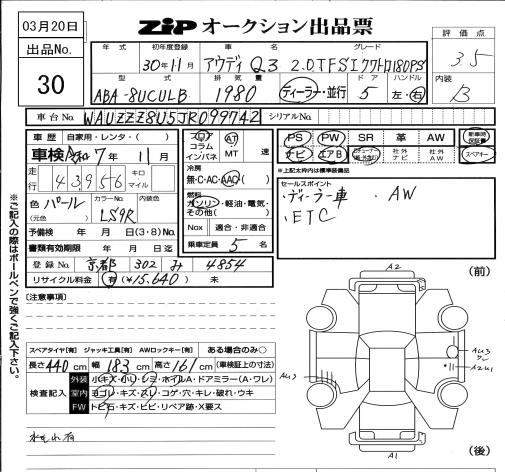 03月20日
ZIP オークション出品票
評価点
3.5
出品No.
30
年式 初年度登録 車名 グレード
30年11月 アウディ Q3 2.0TFSIクワトロ180PS
型式 排気量 ディーラー・並行 ドア ハンドル
ABA-8UCULB 1980 ディーラー・並行 5 左・右
内装
B
車台No. WAUZZZ8U5JR099742 シリアルNo.
車歴 自家用・レンタ・( )
車検 令和7年11月
走行 43956 キロ マイル
色 パール カラーNo. LS9R 内装色
(元色)
予備検 年 月 日(3・8)No.
書類有効期限 年 月 日迄
登録No. 京都 302 み 4854
リサイクル料金 有(¥15.640) 未
フロア コラム インパネ AT MT 速
冷房
無・C・AC・AAC
燃料
ガソリン・軽油・電気・その他( )
Nox 適合・非適合
乗車定員 5 名
PS PW SR 革 AW 新車時保証書
ナビ エアB 社外ナビ 社外AW スペアキー
※上記太枠内は標準装備品
セールスポイント
・ディーラー車 ・AW
・ETC
※ご記入の際はボールペンで強くご記入下さい。
[注意事項]
スペアタイヤ[有] ジャッキ工具[有] AWロックキー[有] ある場合のみ○
長さ440cm 幅183cm 高さ161cm (車検証上の寸法)
検査記入
外装 小キズ・小凹・シミ・ホイルA・ドアミラー(A・ワレ)
室内 ヨゴレ・キズ・スレ・コゲ・穴・キレ・破れ・ウキ
FW トビ石・キズ・ヒビ・リペア跡・X要ス
水モレ有
(前)
A2
AU3
A2U1
AU3
A1
(後)